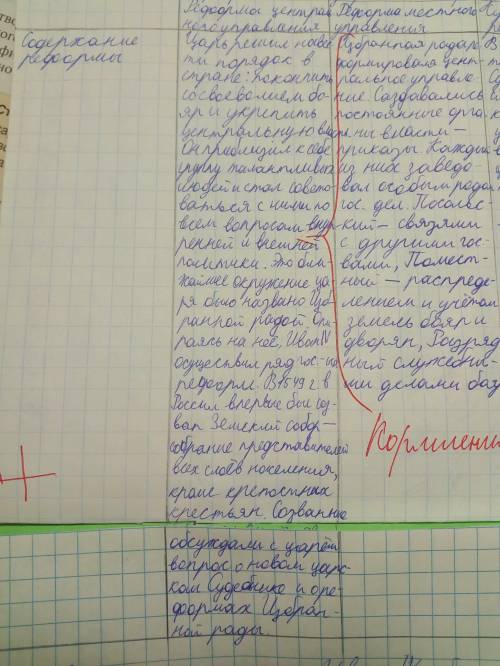 Содержание
реформы
Реформы централь
ного управления
Царь решил навес
ти порядок в
стране: покончить
со своеволием бо
яр и укрепить
центральную вла
Он приблизил к себе
группу талантливых
людей и стал совето
ваться с ними по
всем вопросам внут
ренней и внешней
политики. Это бли
жайшее окружение ца
ря было названо Изб
ранной радой. Опи
раясь на неё, Иван IV
осуществил ряд гос-ых
реформ. В 1549 г. в
России впервые был соз
ван Земский собор —
собрание представителей
всех слоёв населения,
кроме крепостных
крестьян. Созванные
обсуждали с царём
вопрос о новом царс
ком Судебнике и о ре
формах Избран-
ной рады.
Реформа местного
управления
Избранная рада ре
формировала цент
ральное управле
ние. Создавались
постоянные орга
ны власти —
приказы. Каждый
из них заведо
вал особым родом
гос. дел. Посольс
кий — связями
с другими гос
вами, Помест
ный — распреде
лением и учётом
земель бояр и
дворян, Разряд
ный служебны-
ми делами
Кормления